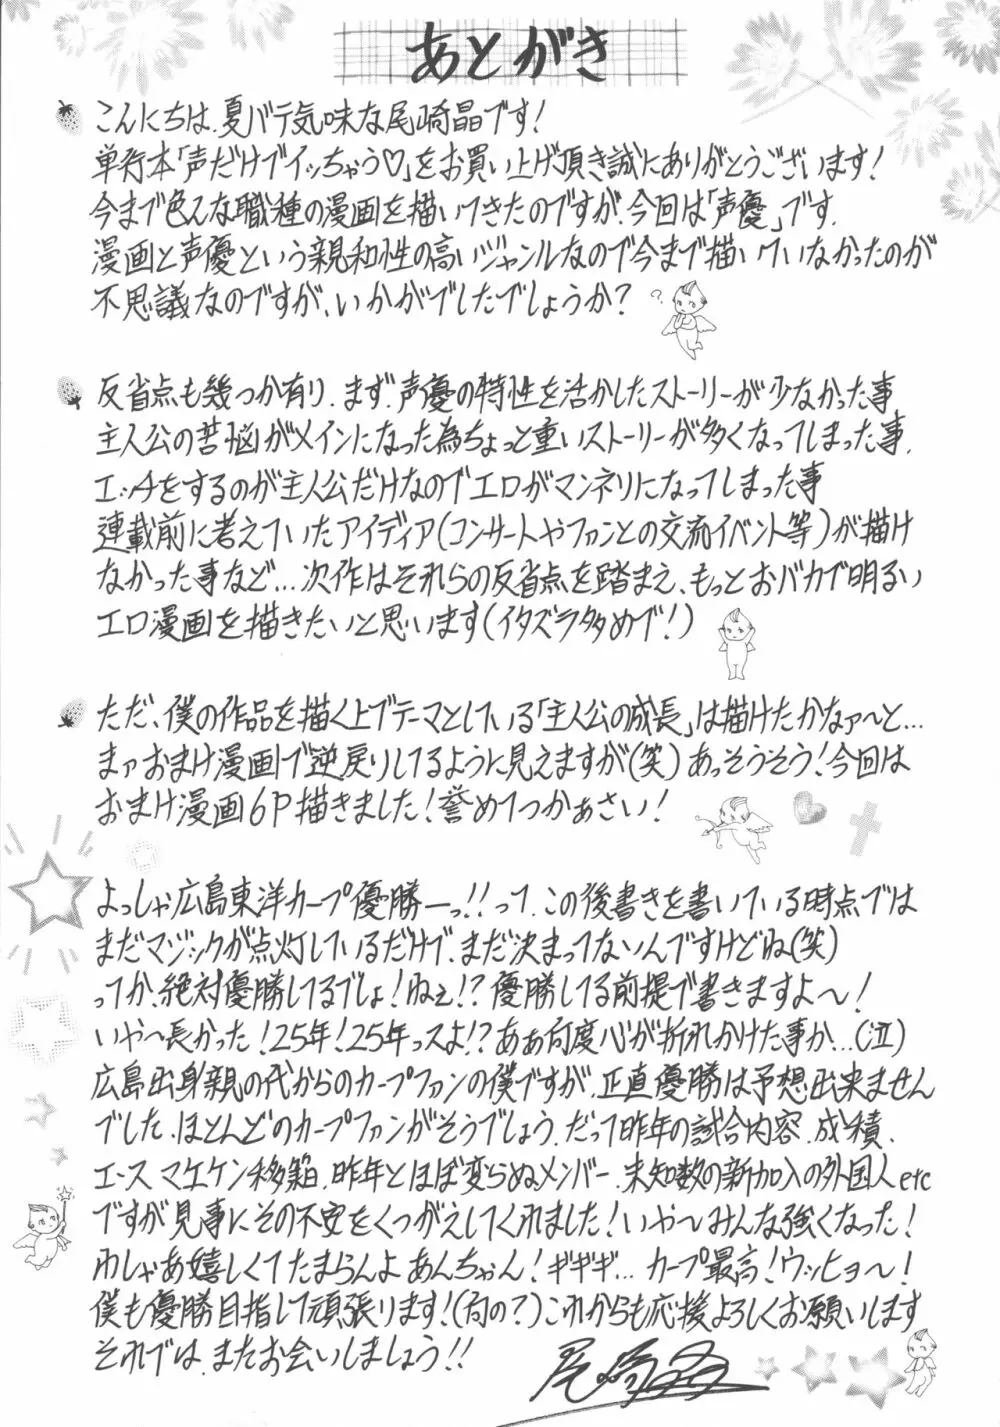 あとがき
こんにちは、夏バテ気味な尾崎晶です!
単行本「声だけでイッちゃう♡」をお買い上げ頂き誠にありがとうございます!
今まで色んな職種の漫画を描いてきたのですが、今回は「声優」です。
漫画と声優という親和性の高いジャンルなので今まで描いていなかったのが
不思議なのですが、いかがでしたでしょうか?
反省点も幾つか有り、まず、声優の特性を活かしたストーリーが少なかった事
主人公の苦悩がメインになった為ちょっと重いストーリーが多くなってしまった事、
エッチをするのが主人公だけなのでエロがマンネリになってしまった事
連載前に考えていたアイディア(コンサートやファンとの交流イベント等)が描け
なかった事など…次作はそれらの反省点を踏まえ、もっとおバカで明るい
エロ漫画を描きたいと思います(イタズラ多めで!)
ただ、僕の作品を描く上でテーマとしている「主人公の成長」は描けたかなァ〜と…
まァおまけ漫画で逆戻りしてるように見えますが(笑)あっそうそう!今回は
おまけ漫画6P描きました!誉めてつかぁさい!
よっしゃ広島東洋カープ優勝ーっ!!って、この後書きを書いている時点では
まだマジックが点灯しているだけで、まだ決まってないんですけどね(笑)
ってか、絶対優勝してるでしょ!ねぇ!?優勝してる前提で書きますよ〜!
いや〜長かった!25年!25年っスよ!?あぁ何度心が折れかけた事か…(泣)
広島出身親の代からのカープファンの僕ですが、正直優勝は予想出来ません
でした、ほとんどのカープファンがそうでしょう、だって昨年の試合内容、成積、
エース マエケン移籍、昨年とほぼ変らぬメンバー、未知数の新加入の外国人etc
ですが見事にその不安をくつがえしてくれました!いや〜みんな強くなった!
わしゃあ嬉しくてたまらんよあんちゃん!ギギギ… カープ最高!ウッヒョ〜!
僕も優勝目指して頑張ります!(何の?)これからも応援よろしくお願いします
それでは、またお会いしましょう!!
尾崎晶